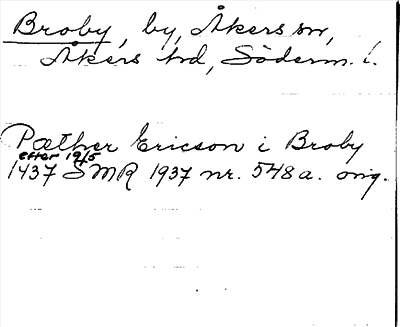 Broby, by, Åkers sn,
Åkers hd, Söderm. l.
Pæther Ericson i Broby
efter 19/5
1437 SMR 1937 nr. 548 a. orig.